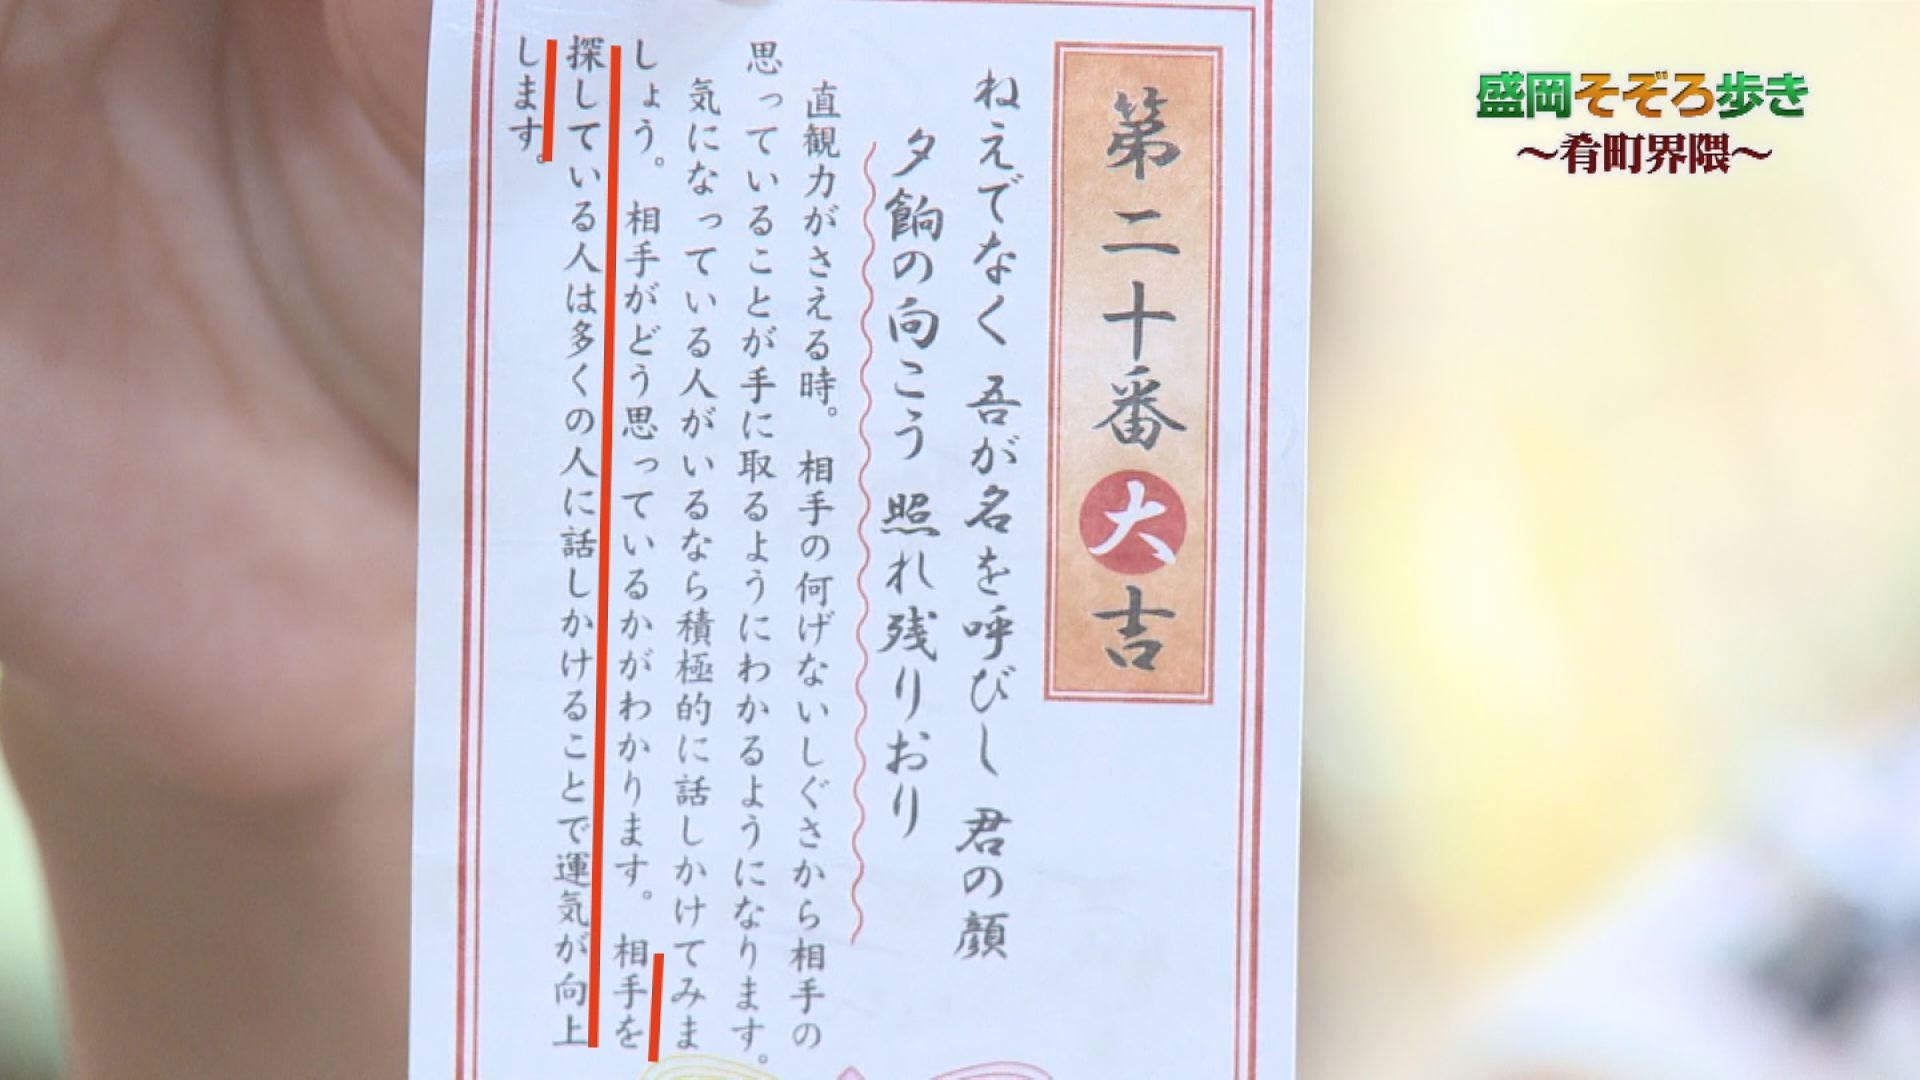 盛岡そぞろ歩き
～肴町界隈～
第二十番大吉
ねえでなく 吾が名を呼びし 君の顔
夕餉の向こう 照れ残りおり
直観力がさえる時。相手の何げないしぐさから相手の
思っていることが手に取るようにわかるようになります。
気になっている人がいるなら積極的に話しかけてみま
しょう。相手がどう思っているかがわかります。相手を
探している人は多くの人に話しかけることで運気が向上
します。